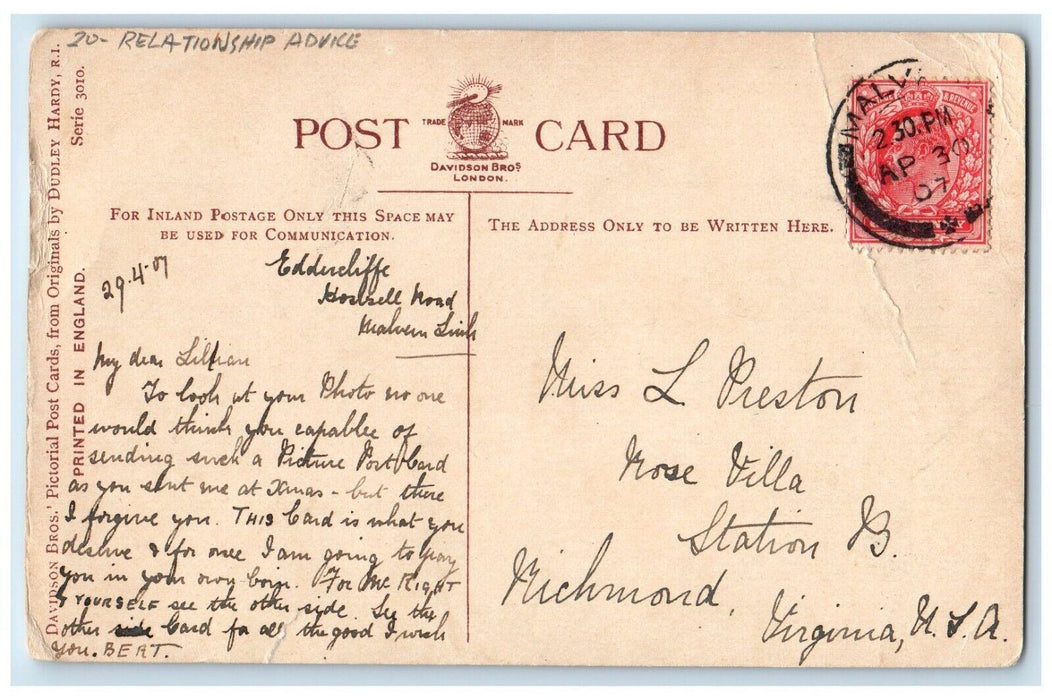 20- RELATIONSHIP ADVICE
POST CARD
TRADE MARK
DAVIDSON BROS
LONDON.
FOR INLAND POSTAGE ONLY THIS SPACE MAY
BE USED FOR COMMUNICATION.
THE ADDRESS ONLY TO BE WRITTEN HERE.
DAVIDSON BROS.' Pictorial Post Cards, from Originals by DUDLEY HARDY, R.I.
Serie 3010.
PRINTED IN ENGLAND.
2 30.PM
AP 30
07
& REVENUE
29.4.07
Eddercliffe
Road
Malvern Link
My dear Lillian
To look at your Photo no one
would think you capable of
sending such a Picture Post Card
as you sent me at Xmas - but there
I forgive you. THIS Card is what you
deserve & for once I am going to pay
you in your own Coin. For Me RIGHT
& YOURSELF see the other side. See the
other side Card for all the good I wish
you. BERT.
Miss L Preston
Rose Villa
Station B.
Richmond,
Virginia, U.S.A.